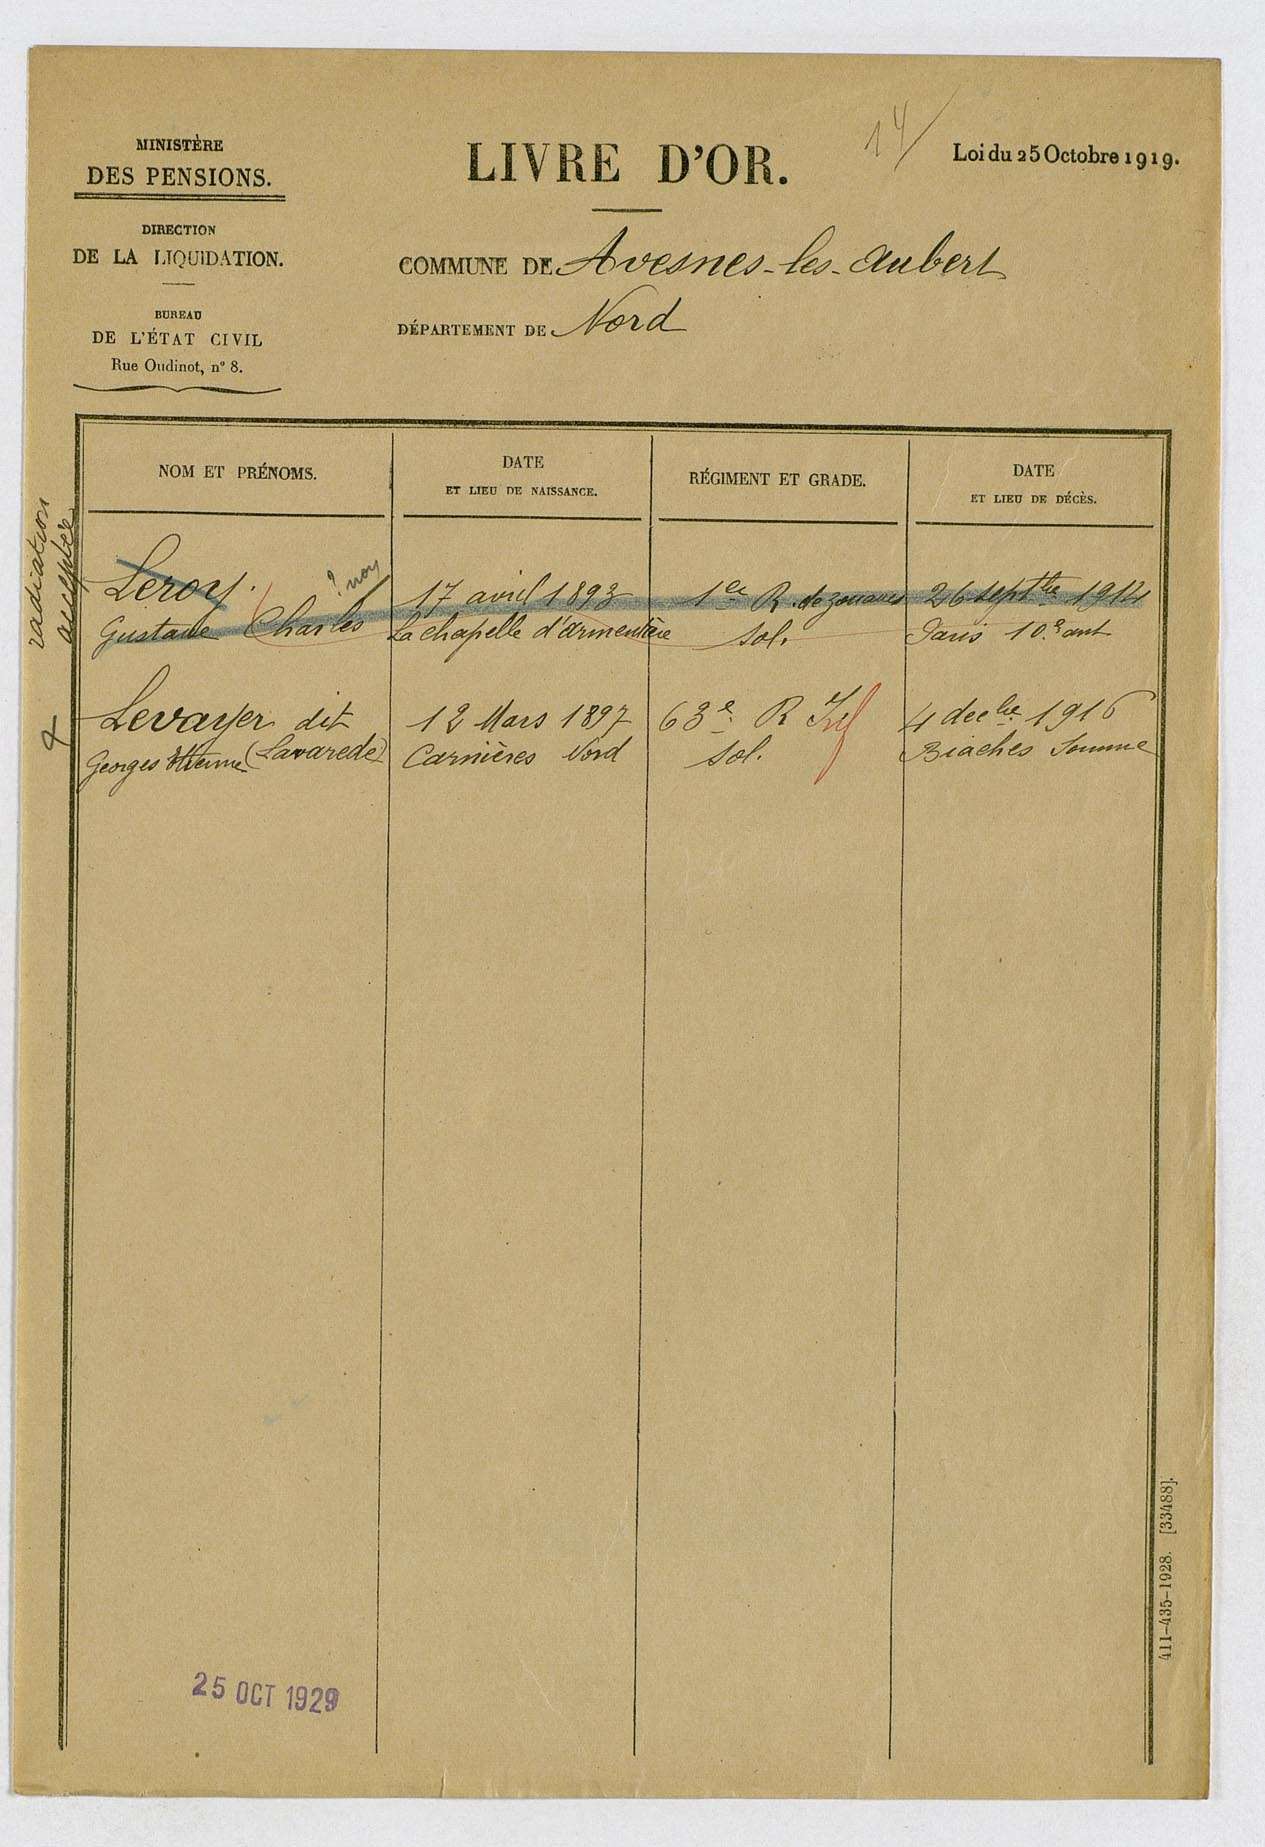 MINISTÈRE
DES PENSIONS.
DIRECTION
DE LA LIQUIDATION.
BUREAU
DE L'ÉTAT CIVIL
Rue Oudinot, n° 8.
LIVRE D'OR.
14
Loi du 25 Octobre 1919.
COMMUNE DE Avesnes-les-Aubert
DÉPARTEMENT DE Nord
NOM ET PRÉNOMS.
DATE
ET LIEU DE NAISSANCE.
RÉGIMENT ET GRADE.
DATE
ET LIEU DE DÉCÈS.
radiation
acceptée
Leroy.
? non
Gustave Charles
17 avril 1893
La chapelle d'armentière
1er R. de zouaves
sol.
26 septbre 1914
Paris 10e arrt
Levayer dit
Georges Etienne (Lavarede)
12 Mars 1897
Carnières Nord
63e R Inf
sol.
4 decbre 1916
Biaches Somme
25 OCT 1929
411-435-1928. [33488].